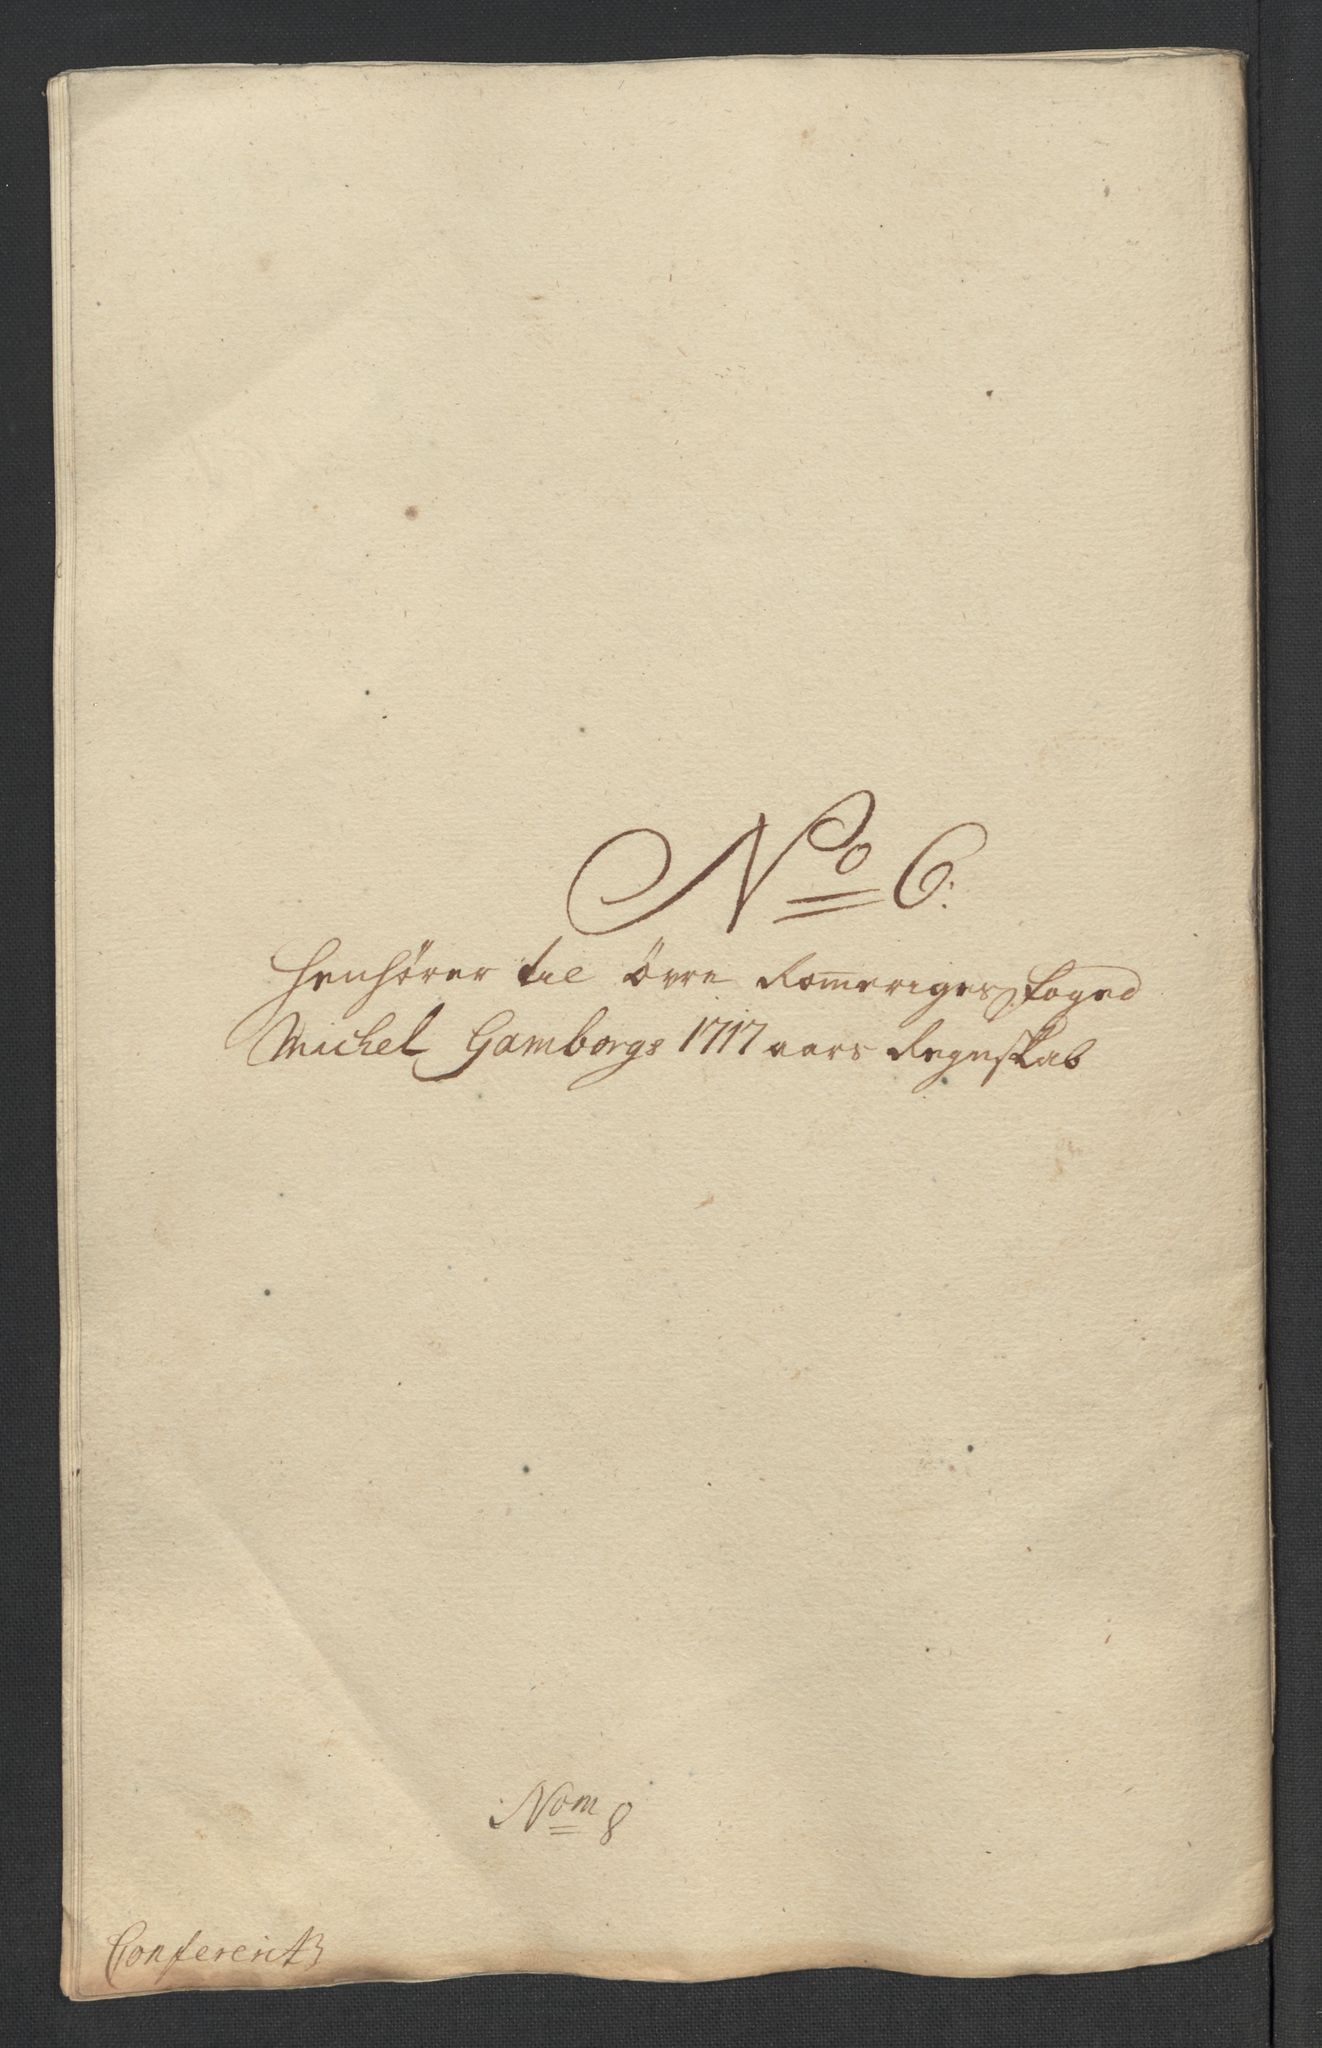 No 6:
Henhörer til Övre Romeriges foged
Michel Gamborgs 1717 aars Regnskab
Nom 8
Conferert